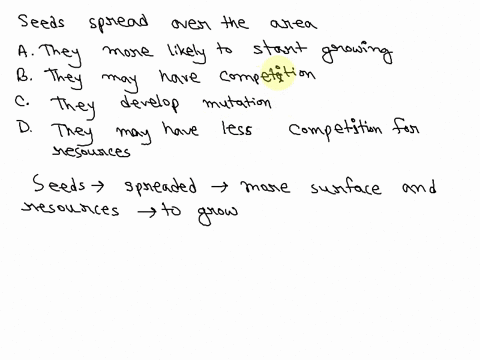 Seeds spread over the area
A. They more likely to start growing
B. They may have competition
C. They develop mutation
D. They may have less competition for
resources
Seeds → spreaded → more surface and
resources → to grow